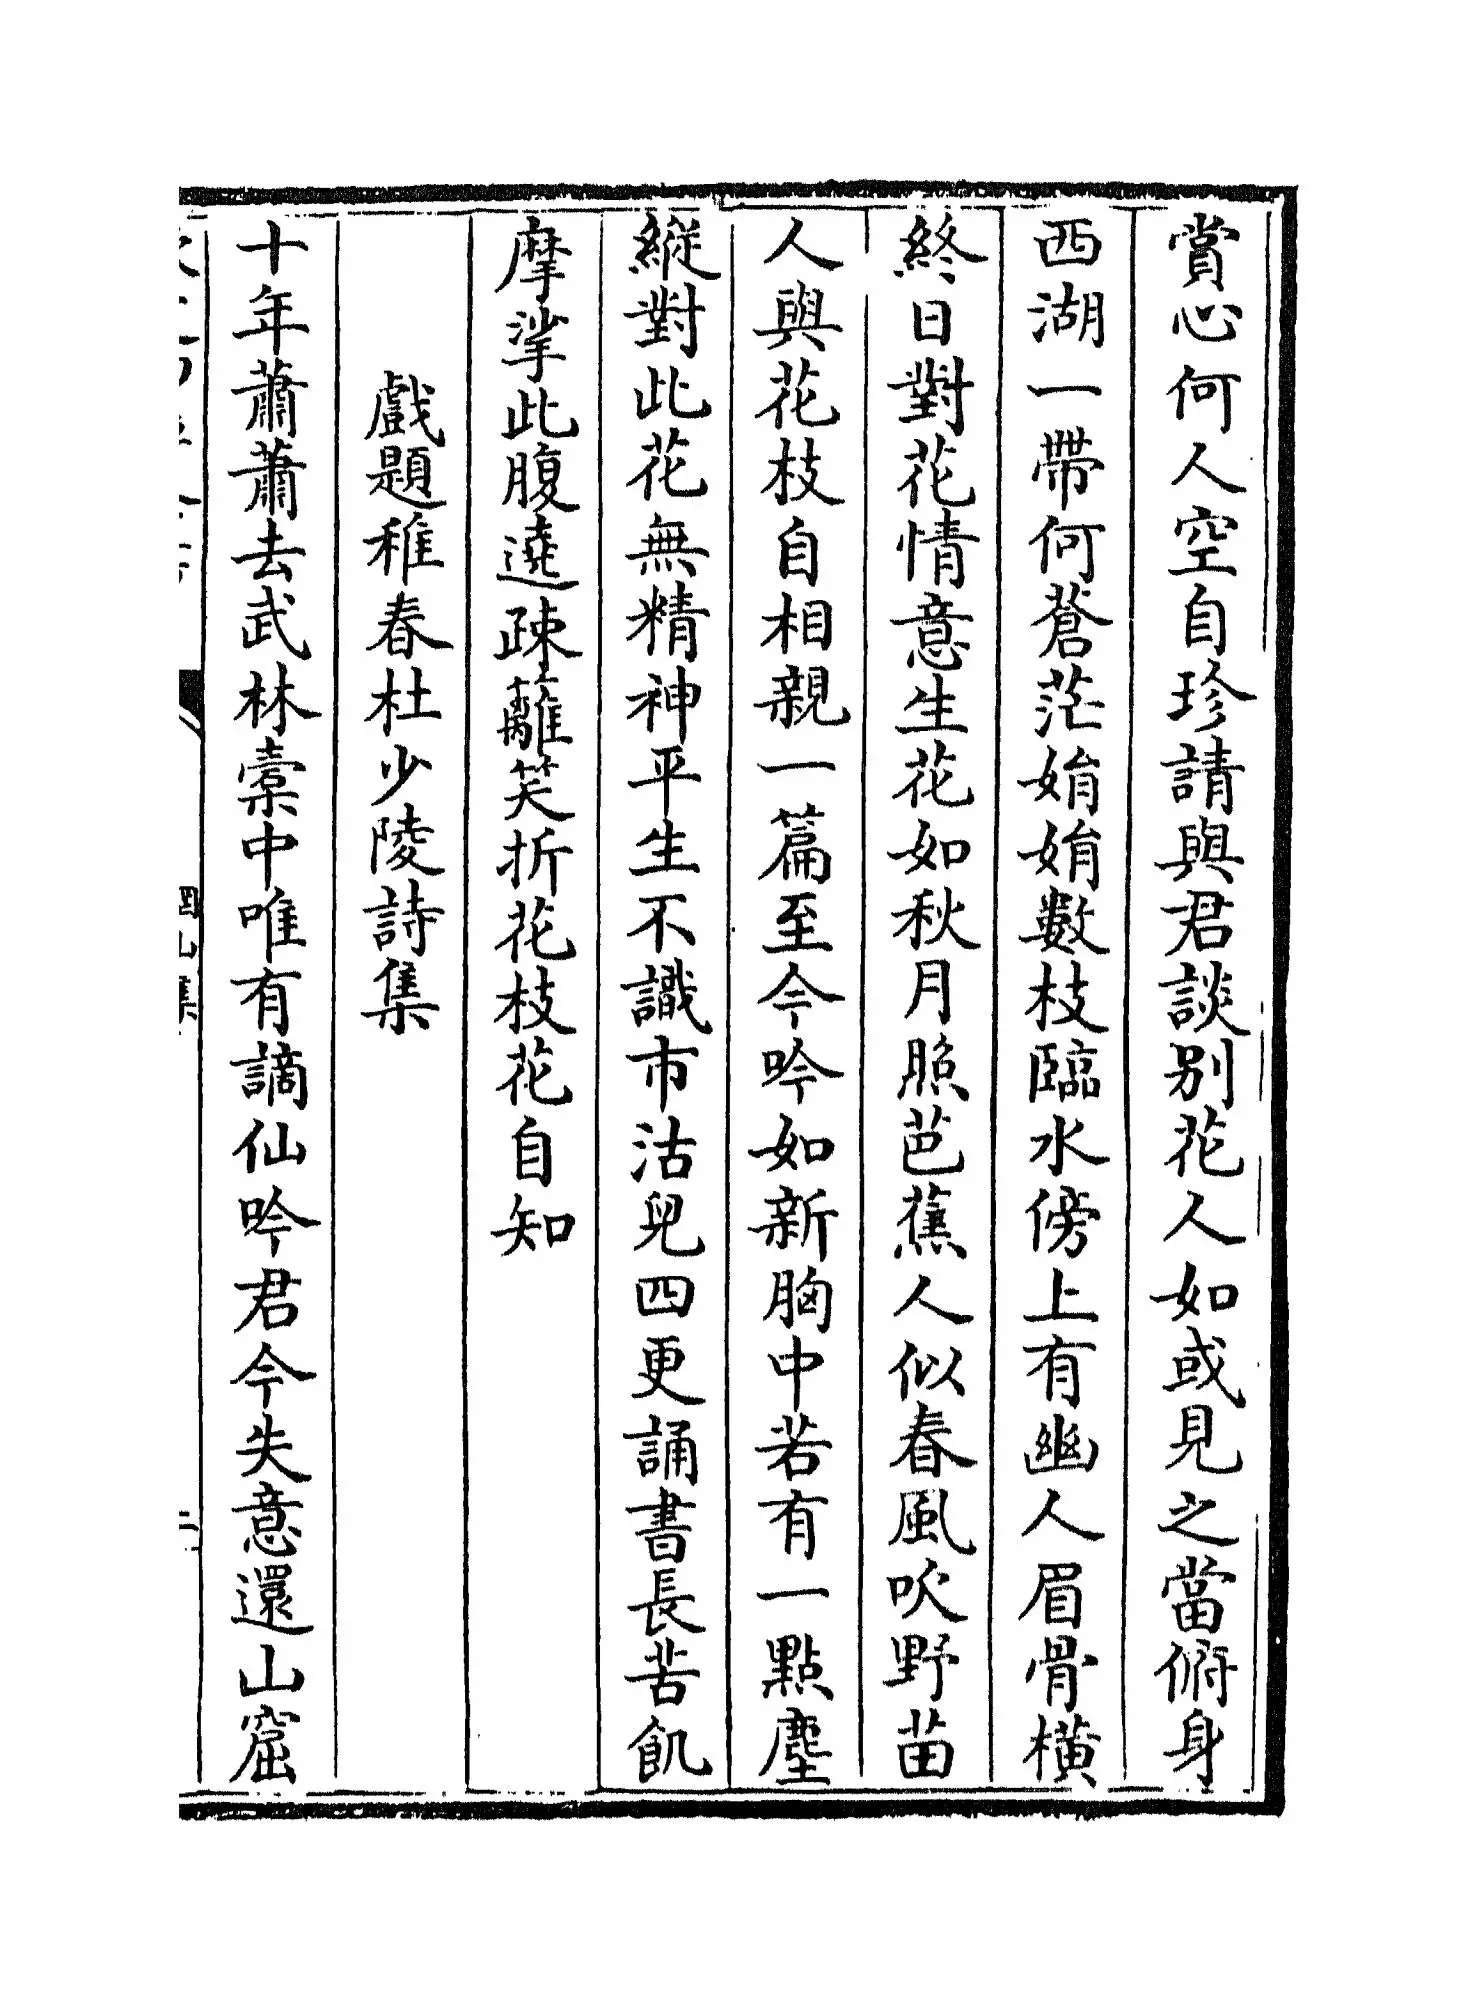 賞心何人空自珍請與君談別花人如或見之當俯身
西湖一帶何蒼茫娟娟數枝臨水傍上有幽人眉骨橫
終日對花情意生花如秋月照芭蕉人似春風吹野苗
人與花枝自相親一篇至今吟如新胸中若有一點塵
縱對此花無精神平生不識市沽兒四更誦書長苦飢
摩挲此腹遶疎蘺笑折花枝花自知
戲題稚春杜少陵詩集
十年蕭蕭去武林槖中唯有謫仙吟君今失意還山窟